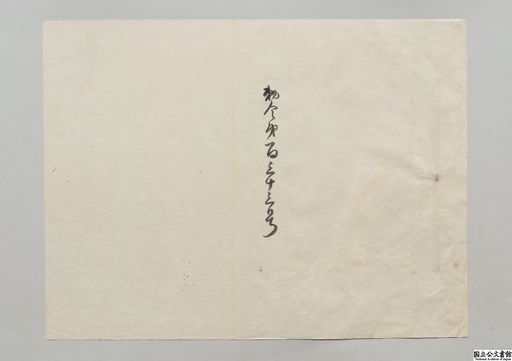 勅令第百三十三号
国立公文書館
National Archives of Japan